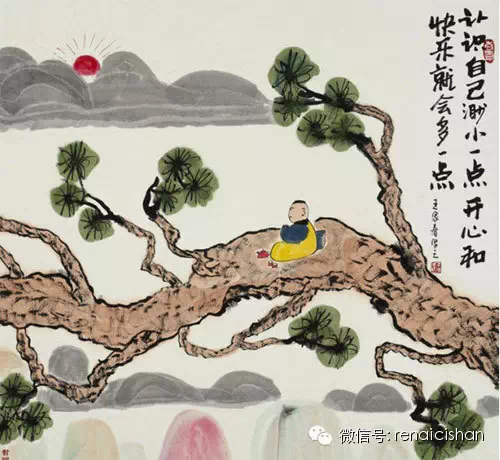 认识自己渺小一点开心和
快乐就会多一点
微信号: renaicishan